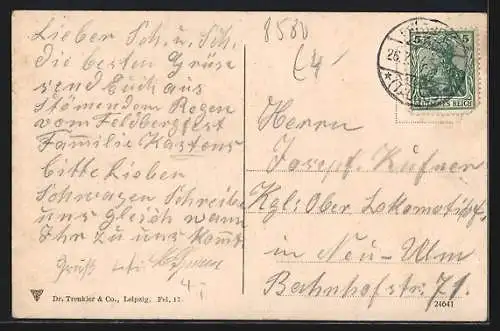 8580
Lieber Sch. u. Sch.
die besten Grüse
send Euch aus
stömendem Regen
vom Feldbergfest
Familie Kastens
bitte lieben
Schwagen Schreibe
uns gleich wann
Ihr zu uns kommt
Gruß
5
5
DEUTSCHES REICH
Herrn
Josepf. Kufner
Kgl: Ober Lokomotivf.
in Neu-Ulm
Bahnhofstr. 71.
Dr. Trenkler & Co., Leipzig. Fel. 17.
24641